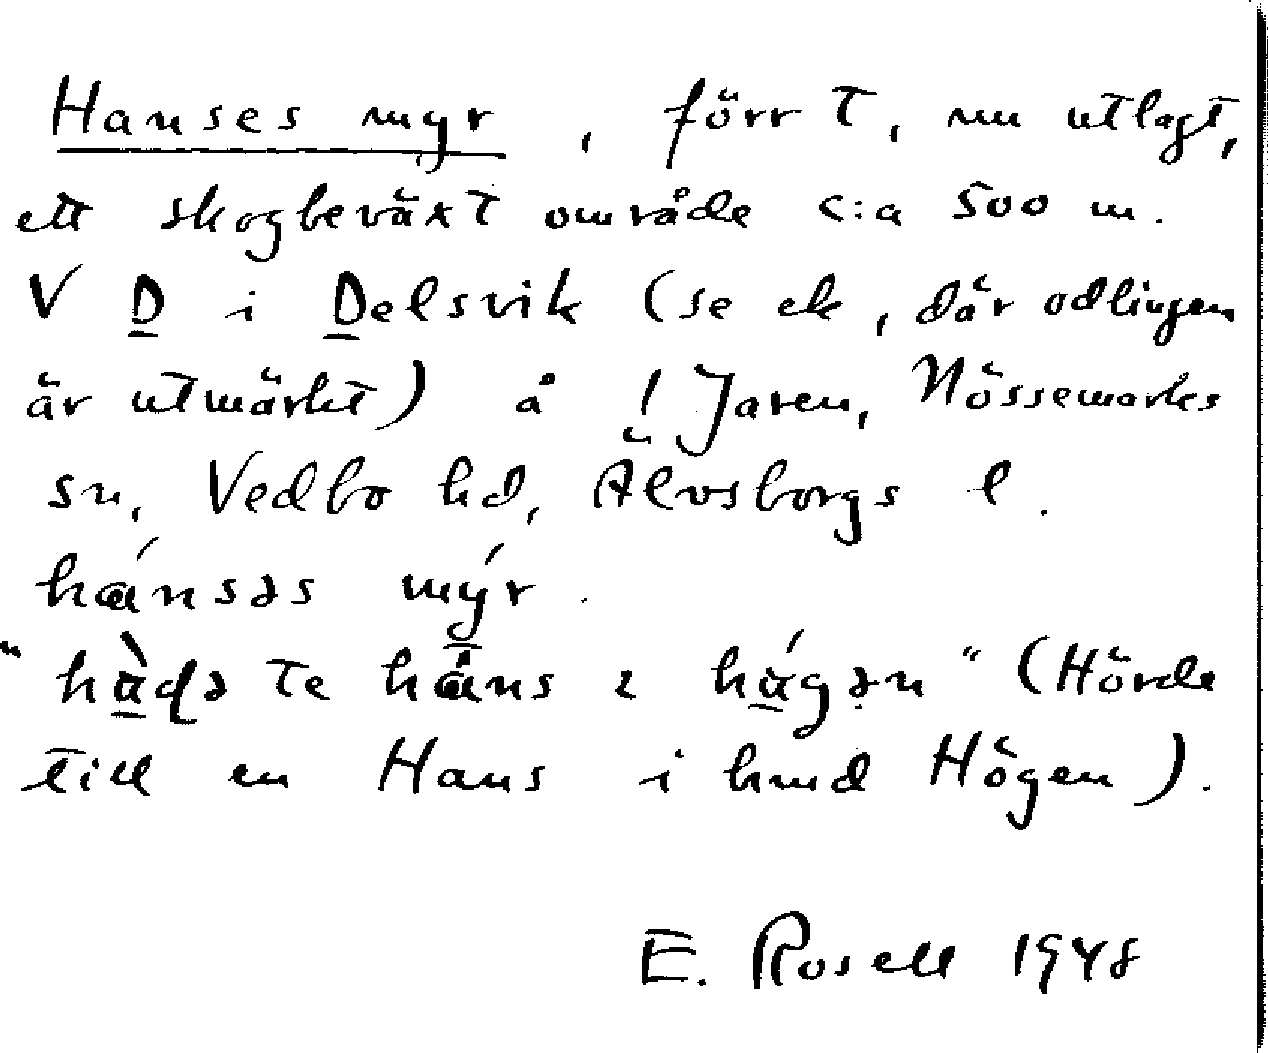 Hanses myr, förr T, nu utlagt,
ett skogbeväxt område c:a 500 m.
V D i Delsvik (se ek, där odlingen
är utmärkt) å ! Jaren, Nössemarks
sn, Vedbo hd, Älvsborgs l.
hánsəs mýr.
te háns ɩ (Hörde
till en Hans i Högen).
E. Rosell 1948